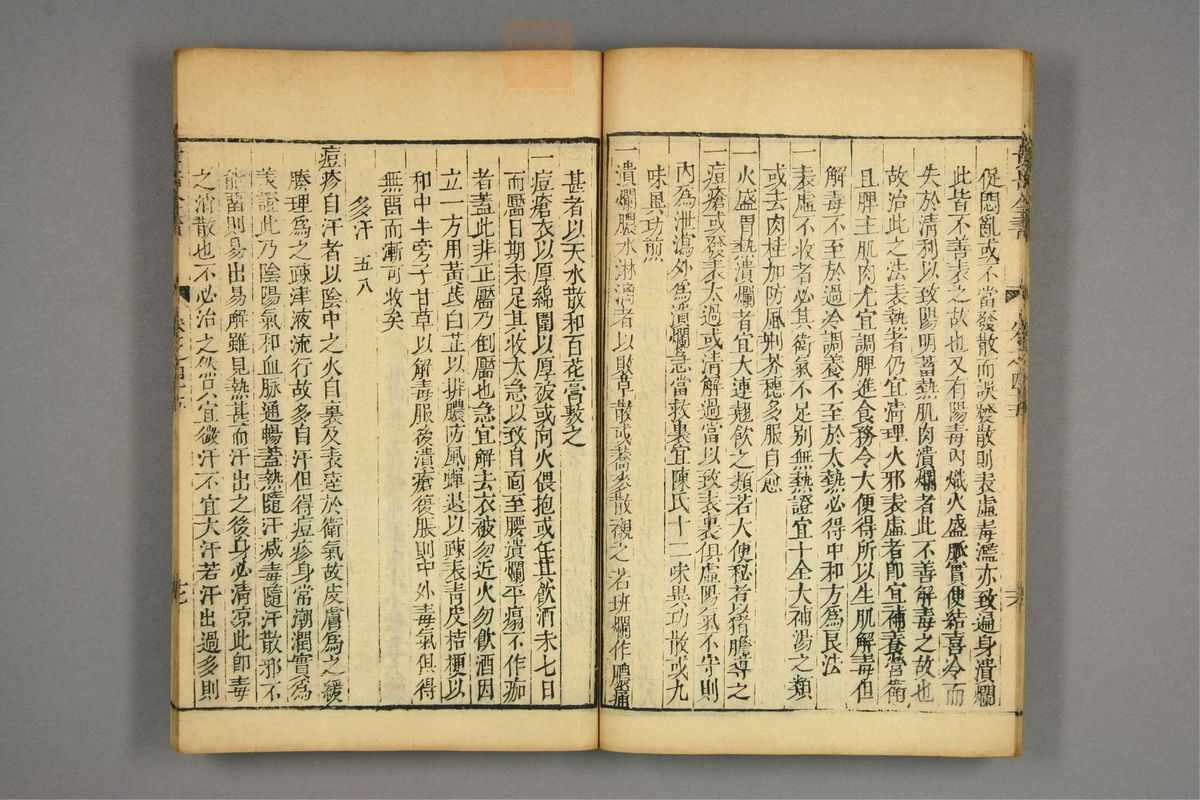 促悶亂或不當發散而誤發散則表虛毒濫亦致遍身潰爛
此皆不善表之故也又有陽毒內熾火盛脈實便結喜冷而
失於清利以致陽明蓄熱肌肉潰爛者此不善解毒之故也
故治此之法表熱者仍宜清理火邪表虛者即宜補養營衛
且脾主肌肉尤宜調脾進食務令大便得所以生肌解毒但
解毒不至於過冷調養不至於太熱必得中和方為良法
一表虛不收者必其衛氣不足別無熱證宜十全大補湯之類
或去肉桂加防風荆芥穗多服自愈
一火盛胃熱潰爛者宜大連翹飲之類若大便秘者以猪膽導之
一痘瘡或發表太過或清解過當以致表裏俱虛陽氣不守則
內為泄瀉外為潰爛急當救裏宜陳氏十二味異功散或九
味異功煎
一潰爛膿水淋漓者以敗草散或蕎麥散襯之若斑爛作膿痛
甚者以天水散和百花膏敷之
一痘瘡衣以厚綿圍以厚被或向火偎抱或年長飲酒未七日
而靨日期未足其收太急以致自面至腰潰爛平塌不作痂
者蓋此非正靨乃倒靨也急宜解去衣被勿近火勿飲酒因
立一方用黃芪白芷以排膿防風蟬退以疎表青皮桔梗以
和中牛旁子甘草以解毒服後潰瘡復脹則中外毒氣俱得
無留而漸可收矣
多汗 五八
痘疹自汗者以陰中之火自裏及表蓬於衛氣故皮膚為之緩
腠理為之疎津液流行故多自汗但得痘疹身常潮潤實為
美證此乃陰陽氣和血脈通暢蓋熱隨汗減毒隨汗散邪不
能留則易出易解雖見熱甚而汗出之後身必清涼此即毒
之消散也不必治之然只宜微汗不宜大汗若汗出過多則